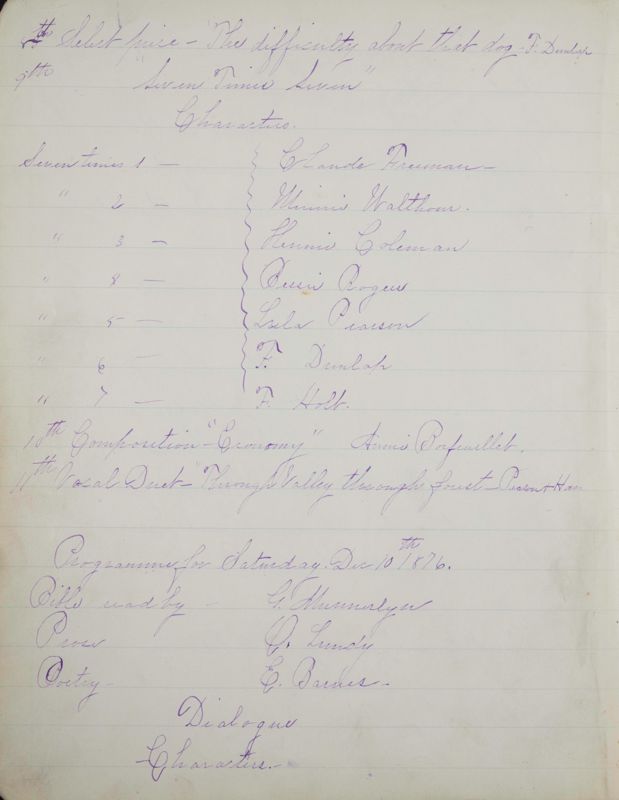 th Select piece - "The difficulty about that dog - F. Dunlap
9th "Seven Times Seven"
Characters.
Seven times 1 — Claude Freeman -
" 2 — Minnie Walthour.
" 3 — Hennie Coleman
" 8 — Rogers
" 5 — Lula Pearson
" 6 — F. Dunlap
" 7 — F. Holt.
10th Composition - "Economy" Annie Porfeuillet.
11th Vocal Duet - "Through Valley through forest - Pearson + 
Programme for Saturday. Dec 10th 1876.
Bible read by - G. Munnerlyn
Prose O. Lundy
Poetry - E. Barnes -
Dialogue
Characters. -